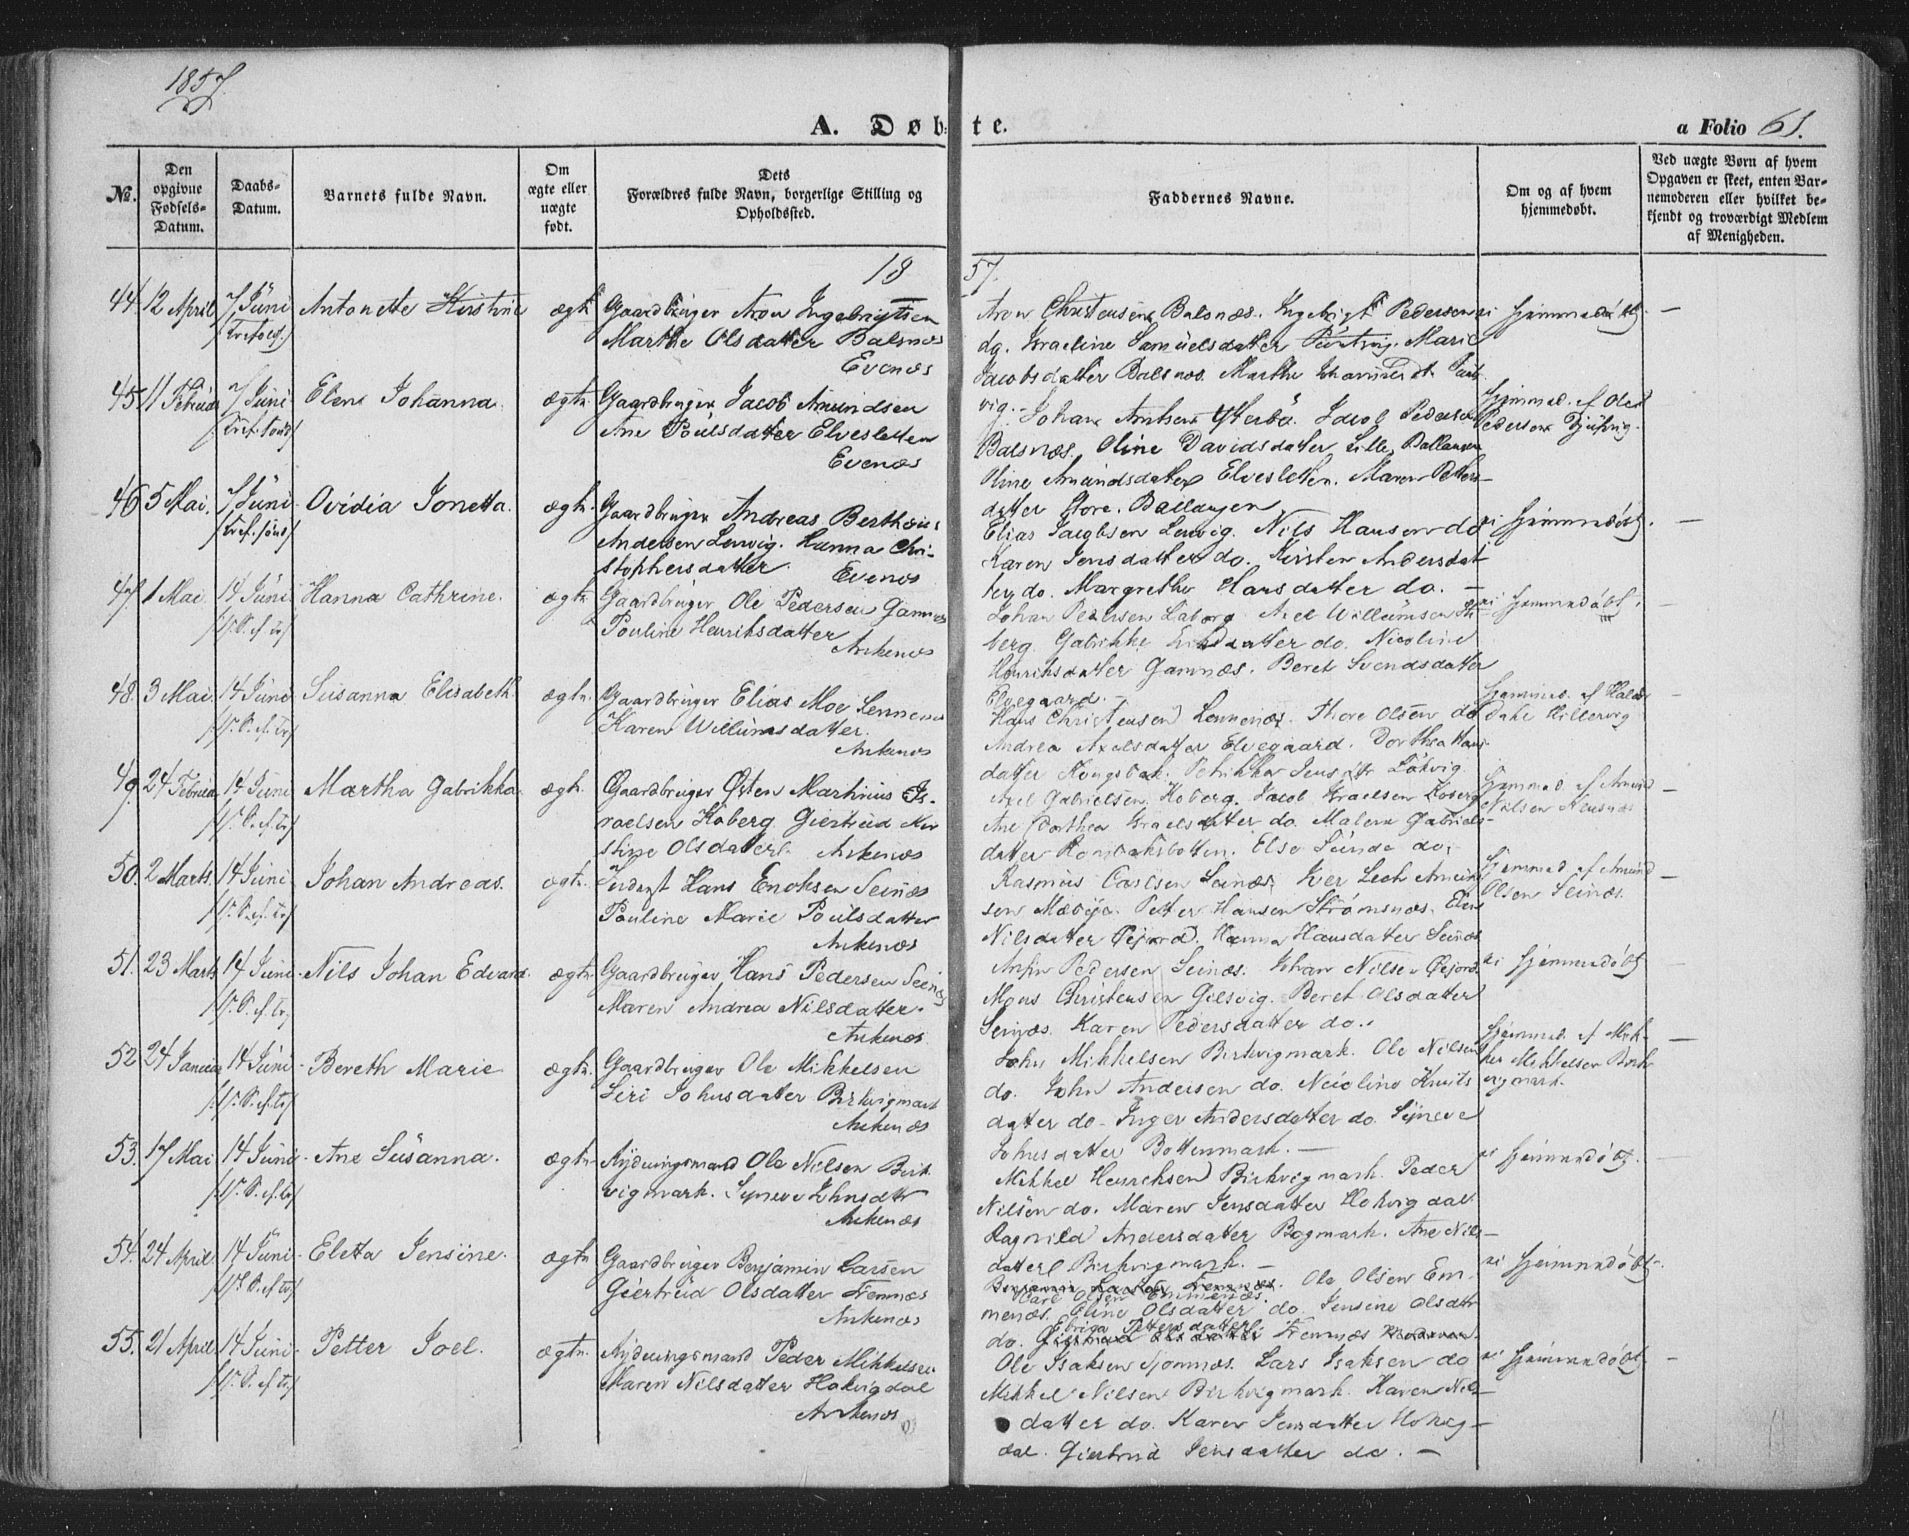 1857.
A. Døbte.
a Folio 61.
№.
Den opgivne Fødsels-Datum.
Daabs-Datum.
Barnets fulde Navn.
Om ægte eller uægte født.
Dets Forældres fulde Navn, borgerlige Stilling og Opholdssted.
Faddernes Navne.
Om og af hvem hjemmedøbt.
Ved uægte Børn af hvem Opgaven er skeet, enten Barnemoderen eller hvilket bekjendt og troværdigt Medlem af Menigheden.
1857.
44. 12 April 7 Juni Antonette Kirstine ægt. Gaardbruger Aron Ingebrigtsen
Marthe Olsdatter Balsnæs
Evenæs
Aron Christensen Balsnæs. Ingebrigt Pedersen
do. Israeline Samuelsdatter Marie
Jacobsdatter Balsnæs. Marthe
hjemmedøbt. —
45. 11 Februar 7 Juni Elen Johanna. ægte. Gaardbruger Jacob Amundsen
Ane Poulsdatter Elvesletten
Evenæs
vig. Johan Jacob Pedersen
Balsnæs. Oline Davidsdatter Lille Ballangen
Oline Amundsdatter Elvesletten. Maren Petters-
datter Store Ballangen
hjemmed. af Ole
Pedersen
46 5 Mai. 7 Juni Ovidia Jonetta. ægte. Gaardbruger Andreas Bertheus
Andersen Lenvig. Hanna Chri-
stophersdatter. Evenæs
Elias Jacobsen Lenvig. Nils Hansen do
Karen Jensdatter do. Kirsten Andersdat
ter do. Margrethe Hansdatter do. —
ei hjemmedøbt. —
47. 1 Mai 14 Juni Hanna Cathrine. ægte Gaardbruger Ole Pedersen Gamnes
Pouline Henriksdatter
Ankenæs
Johan Pedersen Axel Willumsen
berg. Gabrikke do. Nicoline
Henriksdatter Gamnæs. Beret Svendsdatter
Elvegaard. —
ei hjemmedøbt. —
48. 3 Mai. 14 Juni Susanna Elisabeth ægte. Gaardbruger Elias Moe Lennenes
Karen Willumsdatter.
Ankenæs
Hans Christensen Lennenæs. Thore Olsen do
Andrea Axelsdatter Elvegaard. Dorthea Hans-
datter Petrikka
hjemmed. af
Dahl —
49. 24 Februar 14 Juni Martha Gabrikka. ægte. Gaardbruger Østen Martinus Is-
raelsen Hoberg. Giertrud Kir
stine Olsdatter. Ankenæs
Axel Gabrielsen Hoberg. Jacob Israelsen
Ane Dorthea Israelsdatter do. Malene Gabriels-
datter Rombaksbotten. Else Sunde do.
hjemmed. af Amund
Nilsen —
50. 2 Marts 14 Juni Johan Andreas. ægte. Inderst Hans Enoksen Seinæs
Pouline Marie Poulsdatter
Ankenæs
Rasmus Carlsen Seinæs. Iver
sen Petter Hansen Strømsnæs. Elen
Nilsdatter Øejord. Hanna Hansdatter Seinæs
hjemmed af Amund
Olsen Seinæs. —
51. 23 Marts 14 Juni Nils Johan Edvard. ægte Gaardbruger Hans Pedersen Seinæs
Maren Andrea Nilsdatter.
Ankenæs
Anfin Pedersen Seinæs. Johan Nilsen Øejord.
Mons Christensen Beret Olsdatter
Seinæs. Karen Pedersdatter do.
ei hjemmedøbt —
52. 24 Januar 14 Juni Bereth Marie ægte. Gaardbruger Ole Mikkelsen
Siri Johnsdatter Birkvigmark
Ankenæs
John Mikkelsen Birkvigmark. Ole Nilsen
do. John Andersen do. Nicoline Knuts
datter do. Inger Andersdatter do. Syneve
Johnsdatter Bottenmark. —
hjemmed. af Mik-
kel Mikkelsen Birk-
vigmark.
53. 17 Mai 14 Juni Ane Susanna. ægte. Rydningsmand Ole Nilsen Birk
vigmark. Syneve Johnsdtr
Ankenæs
Mikkel Henriksen Birkvigmark. Peder
Nilsen do. Maren Jensdatter Hokvigdal
Ragnild Andersdatter Bogmark. Ane Nils-
datter Birkvigmark. —
ei hjemmedøbt.
54. 24 April 14 Juni Eletta Jensine. ægte Gaardbruger Benjamin Larsen
Giertrud Olsdatter Femnæs
Ankenæs
Carl Olsen Emmenæs. Ole Olsen Em-
menæs. Oline Olsdatter do. Jensine Olsdtr
do. Pettersdatter Femnæs
ei hjemmedøbt. —
55. 21 April 14 Juni Petter Joel. ægte. Rydningsmand Peder Mikkelsen
Maren Nilsdatter Hokvigdal
Ankenæs
Ole Isaksen Lars Isaksen do
Mikkel Nilsen Birkvigmark. Karen Nils-
datter do. Karen Jensdatter Hokvig-
dal. Giertrud Jensdatter do. —
ei hjemmedøbt —